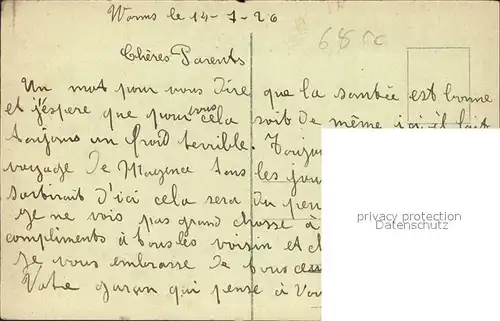 Worms le 14-1-20
68 cc
Chères Parents
Un mot pour vous dire que la santée est bonne
et j'espere que pour vous cela soit de même ici il fait
toujours un froid terrible. Toujou
voyage de Mayence tous les jou
sortirait d'ici cela sera du peu
Je ne vois pas grand chosse à
compliments à tous les voisin et
Je vous embrasse de tous
Votre garçon qui pense à Vou
privacy protection
Datenschutz